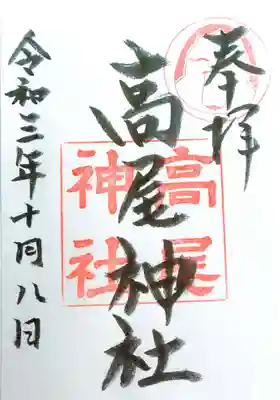 奉拝
高尾神社
高尾
神社
令和三年十月八日